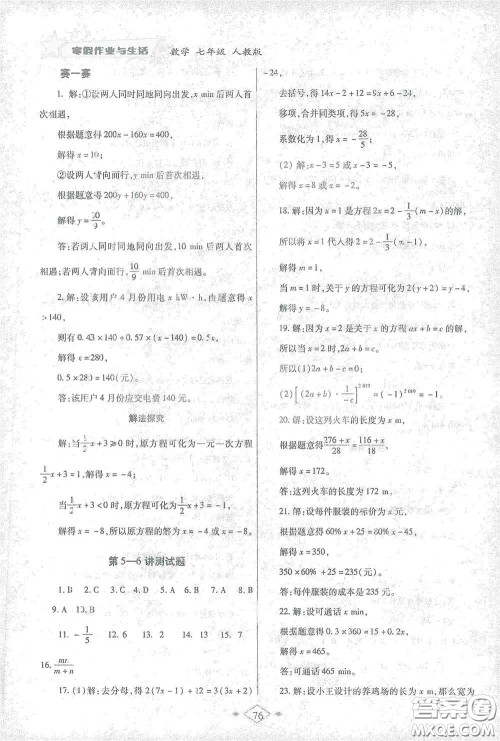 寒假作业与生活 数学 七年级 人教版
赛一赛
1. 解:①设两人同时同地同向出发,x min后两人首
次相遇,
根据题意得 200x-160x=400,
解得 x=10;
②设两人背向而行,y min后首次相遇,
根据题意得 200y+160y=400,
解得 y=10/9.
答:若两人同时同地同向出发,10 min后两人首
次相遇;若两人背向而行,10/9 min后首次相遇.
2. 解:设该用户4月份用电x kW·h,由题意得x
>140,
则有 0.43×140+0.57×(x-140)=0.5x,
解得 x=280,
0.5×280=140(元).
答:该用户4月份应交电费140元.
解法探究
解:当1/2x+3≥0时,原方程可化为一元一次方程
1/2x+3=1,解得x=-4;
当1/2x+3<0时,原方程可化为-(1/2x+3)=1,
解得x=-8.所以原方程的解为x=-4或x=-8.
第5—6讲测试题
1. B 2. C 3. C 4. A 5. D 6. C 7. D 8. B
9. A 10. D
11. -1/5 12. 6 13. 4 14. 12 15. 7
16. mr/(m+n)
17. (1)解:去分母,得2(7x-1)+12=3(2x+2)
-24,
去括号,得14x-2+12=6x+6-24,
移项,合并同类项,得8x=-28,
系数化为1,得x=-28/8;
(2) 解:x-3=5或x-3=-5,
解得x=8或x=-2.
18. 解:因为x=1是方程2x=2-1/3(m-x)的解,
所以将x=1代入得2=2-1/3(m-1),
解得m=1.
当m=1时,关于y的方程可化为2(y+2)=y-4,
解得y=-8.
19. 解:因为x=2是关于x的方程ax+b=c的解,
所以当x=2时,2a+b=c.
所以(1)2a+b-c=0;
(2)[(2a+b)·1/-c]^2019=(-1)^2019=-1.
20. 解:设这列火车的长度为x m,
根据题意得(276+x)/28=(116+x)/18,
解得x=172.
答:这列火车的长度为172 m.
21. 解:设每件服装的标价为x元,
根据题意得60%x+25=80%x-45,
解得x=350.
350×60%+25=235(元).
答:每件服装的成本是235元.
22. 解:设可通话x min,
根据题意得0.3×360+15=
解得x=465.
答:可通话465 min.
23. 解:设小王设计的养鸡场的长是x m,那么宽为
76